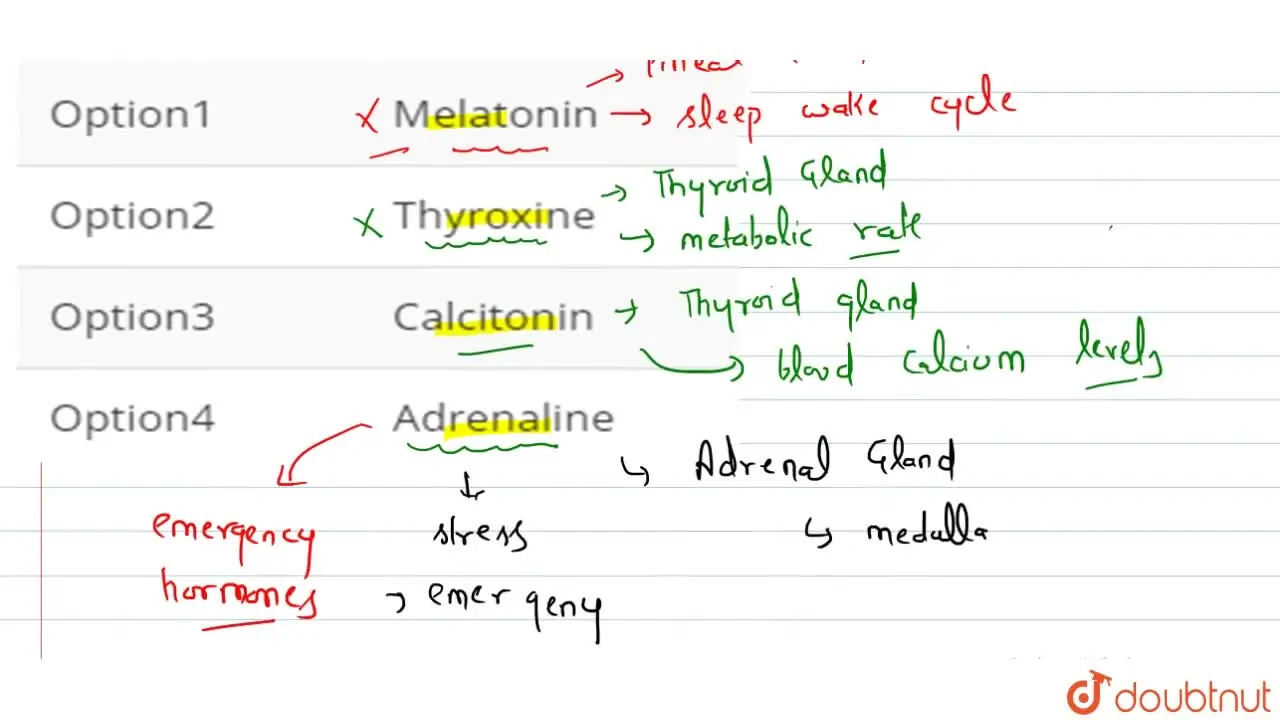 Option1 × Melatonin → sleep wake cycle
→ Thyroid Gland
Option2 × Thyroxine
→ metabolic rate
Option3 Calcitonin → Thyroid gland
→ blood calcium levels
Option4 Adrenaline
↳ Adrenal Gland
emergency stress ↳ medulla
hormones → emergeny
doubtnut